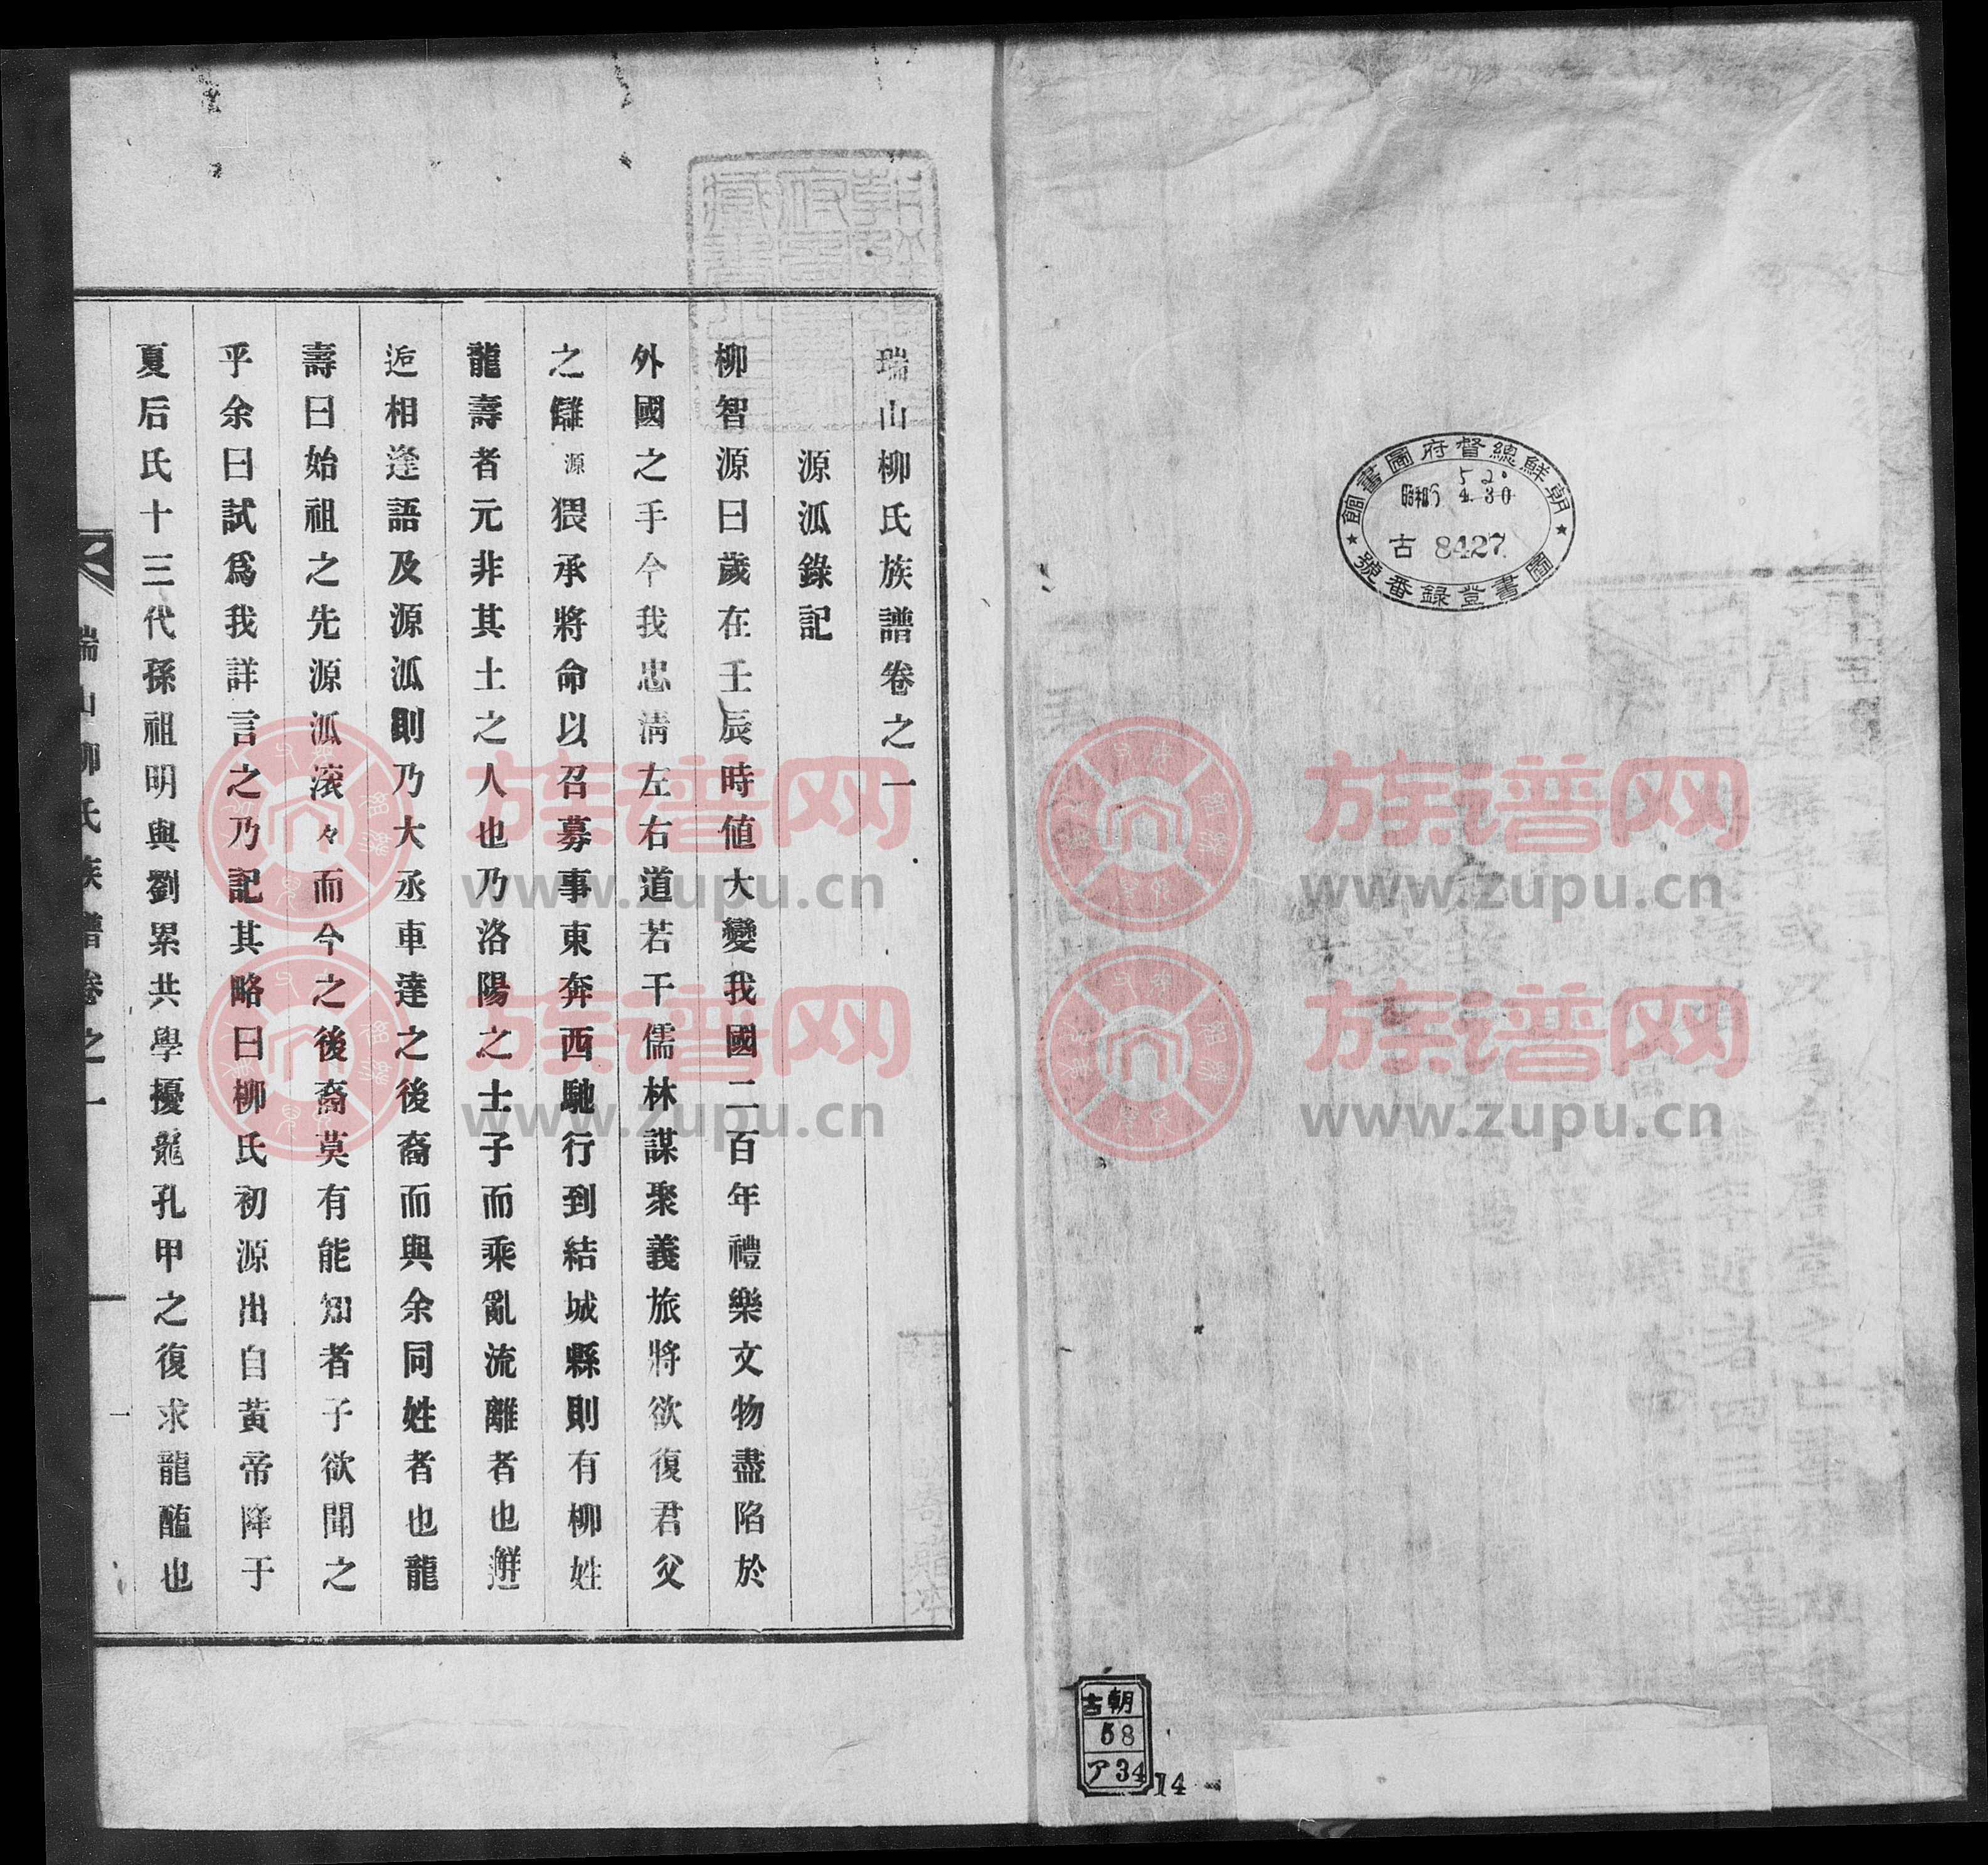 朝鮮總督府圖書館
5 2.
昭和 4.30
古 8427
圖書登錄番號
朝古
58
ア34
14
瑞山柳氏族譜卷之一
源泒錄記
柳智源曰歲在壬辰時値大變我國二百年禮樂文物盡陷於
外國之手今我忠淸左右道若干儒林謀聚義旅將欲復君父
之讎源猥承將命以召募事東奔西馳行到結城縣則有柳姓
龍壽者元非其土之人也乃洛陽之士子而乘亂流離者也邂
逅相逢語及源泒則乃大丞車達之後裔而與余同姓者也龍
壽曰始祖之先源泒滚々而今之後裔莫有能知者子欲聞之
乎余曰試爲我詳言之乃記其略曰柳氏初源出自黃帝降于
夏后氏十三代孫祖明與劉累共學擾龍孔甲之復求龍醢也
瑞山柳氏族譜卷之一
一
族谱网
www.zupu.cn
族谱网
www.zupu.cn
族谱网
www.zupu.cn
族谱网
www.zupu.cn